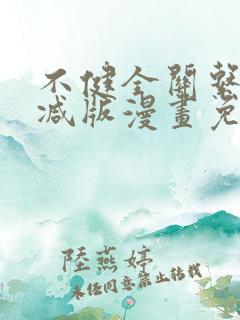 不健全關繫
减版漫畫免
陸燕婷
未经同意禁止转载